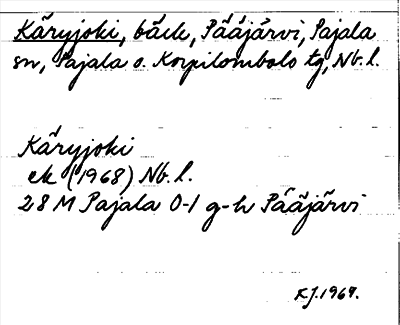 Käryjoki, bäck, Pääjärvi, Pajala
sn, Pajala o. Korpilombolo tg, Nb. l.
Käryjoki
ek (1968) Nb. l.
28 M Pajala 0-1 g-h Pääjärvi
KJ. 1969.